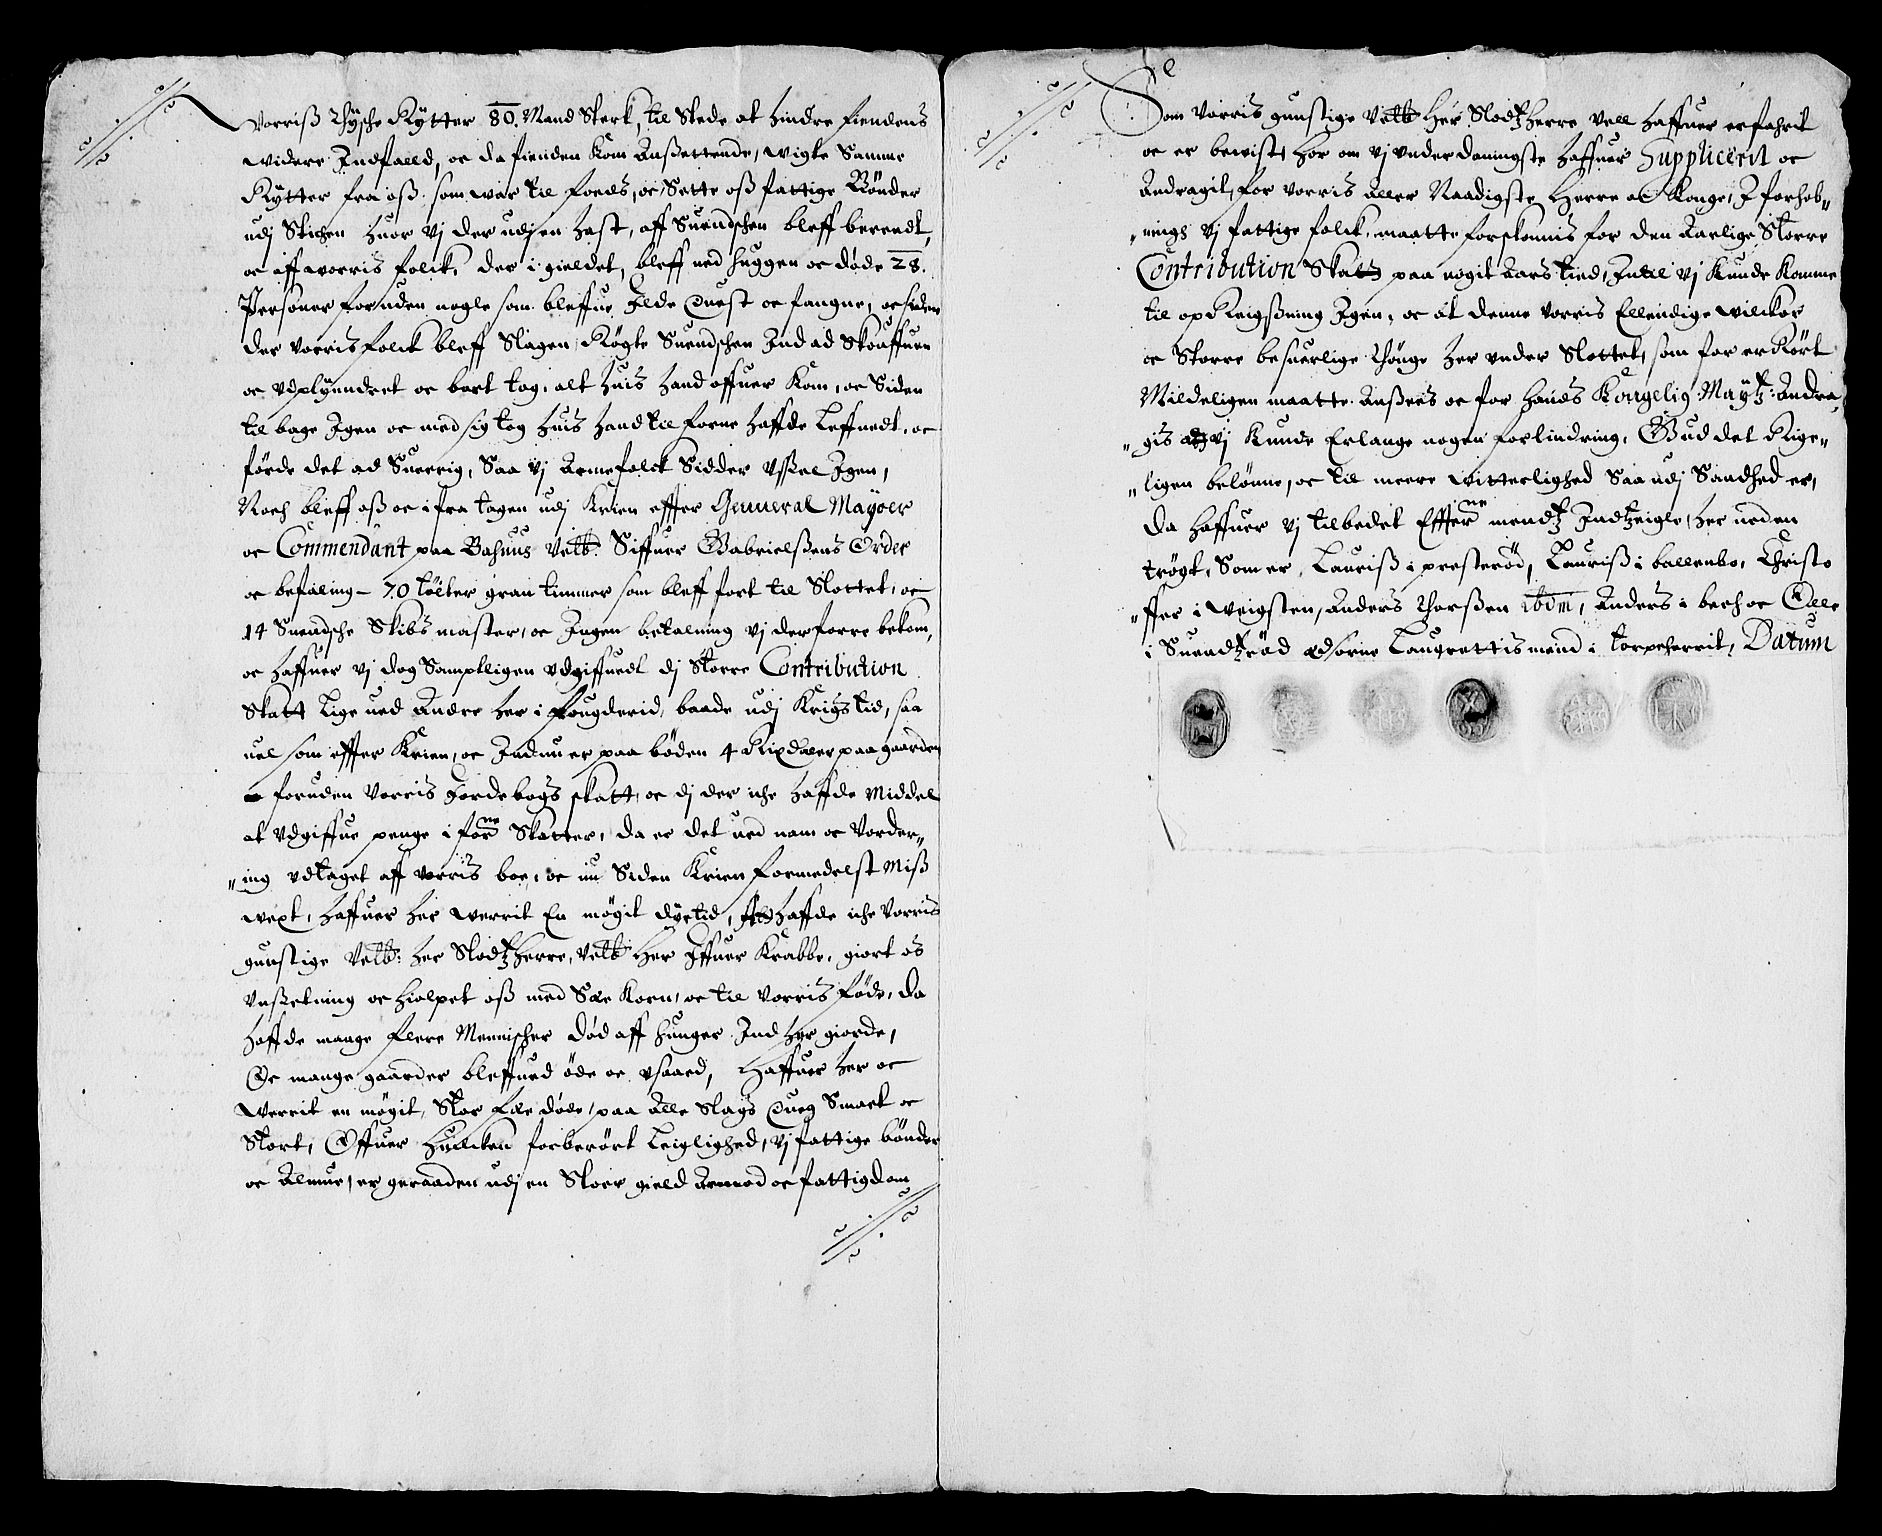 Vorriß thysche Rytter 80. Mand Sterk, til Stede at hindre fiendens
widere Indfalld, oc da fienden kom Anßettende, wigte Samme
Rytter fra oß som war til foeds, oc Sette oß fattige Bønder
udj Stichen huor vj der udj en hast, aff Suendschen bleff berendt,
oc aff worris folck, der i gieldet, bleff ned huggen oc døde 28.
Personer foruden nogle som bleffue Ilde Quest oc fangne, oc siden
der vorris folck bleff Slagen, Røgte Suendschen Ind ad Skouffuen
oc vdplyundret oc bort tog, alt huis hand offuer kom, oc Siden
til bage Igen oc med sig tog huis hand til forne haffde Leffnedt, oc
førde det ad Suerrig, Saa vj Arme folck Sidder vßel Igen,
Noch bleff oß oc ifra tagen udj Krien effter General Mayoer
oc Commendant paa Bahuus Velb: Siffuer Gabrielßens Order
oc befaling - 70 tølter gran timmer som bleff fort til Slottet, oc
14 Suendsche Skibs master, oc Ingen betalning vj der forre bekom,
oc haffuer vj dog Samptligen vdgiffuedt dj Storre Contribution
Skatt Lige ued Andre her i fougderid, baade udj Krigs tid, saa
uel som effter Krien, oc Ind nu er paa bøden 4 Rixdaler paa gaarden
foruden vorris Jordebogs skatt, oc dj der iche haffde Middel
at vdgiffue penge i forne Skatter, da er det ued nam oc Vorder„
„ing vdtaget aff vorris boe, oc nu Siden Krien formedelst Miß
wext, haffuer her werrit En møgit dyrtid, haffde iche Vorris
gunstige Velb: her Slodtzherre, velb her Iffuer Krabbe, giort os
vnßetning oc hiolpet oß med Sæe Korn, oc til vorris føde, da
haffde mange flere Mennischer død aff hunger Ind her giorde,
Oc mange gaarder bleffued øde oc vsaaed, Haffuer her oc
werrit en møgit Stor Fæe døde, paa Alle Slags Queg Smaat oc
Stort, Offuer huilcken forberørt Leiglighed, vj fattige bønder
oc Almue, er geraaden udj en Stoer gield Armod oc fattigdom
Som vorris gunstige Velb Her Slodtzherre vell haffuer erfahrit
oc er bewist, hor om vj vnderdaningste haffuer Supplicerit oc
Andragit, for vorris Aller Naadigste Herre oc Konge, I forhob„
„nings vj fattige folck, maatte forskonnis for den Aarlige Storre
Contribution Skatt paa nogit Aars tied, Intil vj Kunde Komme
til op Reigßning Igen, oc at denne vorris Ellendige wilckor
oc Storre besuerlige thønge her vnder Slottet, som for er Rørt
Mildeligen maatte Anßees oc for hands Kongelig: Maytz: Andra„
„gis at vj Kunde Erlange nogen forlindring, Gud det Rige„
„ligen belønne, oc til meere witterlighed Saa udj Sandhed er,
Da haffuer vj tilbedet Effterne mendtz Indtzeigle, her neden
trøgt, Som er, Lauriß i presterød, Lauriß i ballenbo, Christo
„ffer i weigsten, Anders thorßen ibdm, Anders i bech oc Olle
i Suendtzrød Edsorne Laugrettismend i torpeherrit, Datum